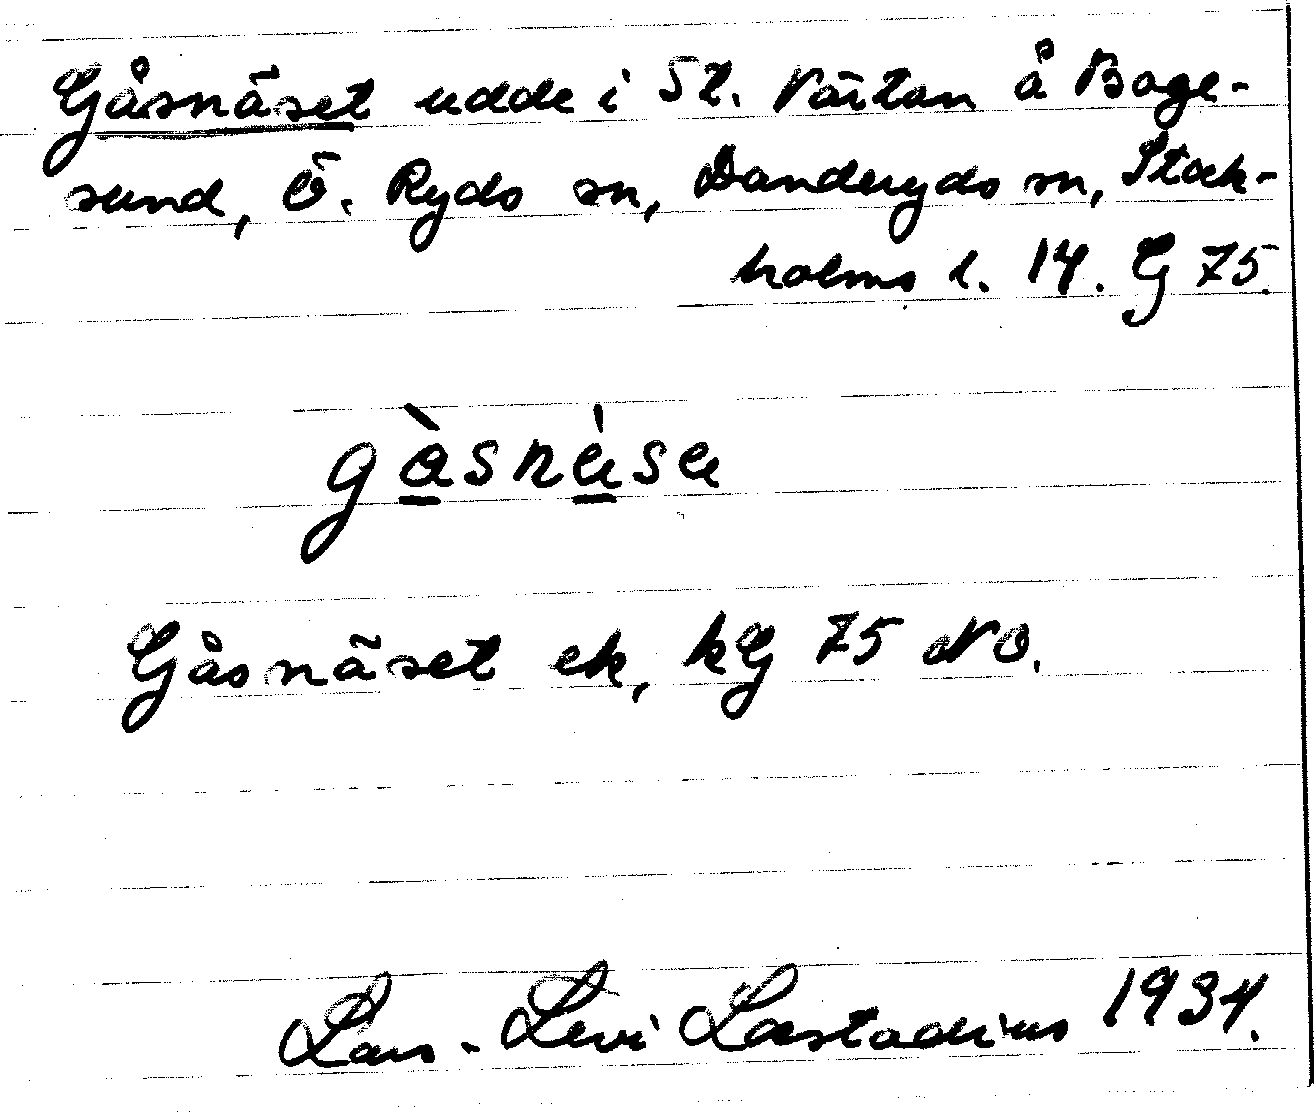 Gåsnäset udde i St. Värtan å Boge-
sund, Ö. Ryds sn, Danderyds sn, Stock-
holms l. 14. G 75.
gàsnàse
Gåsnäset ek, kG 75 NO.
Lars-Levi Læstadius 1934.